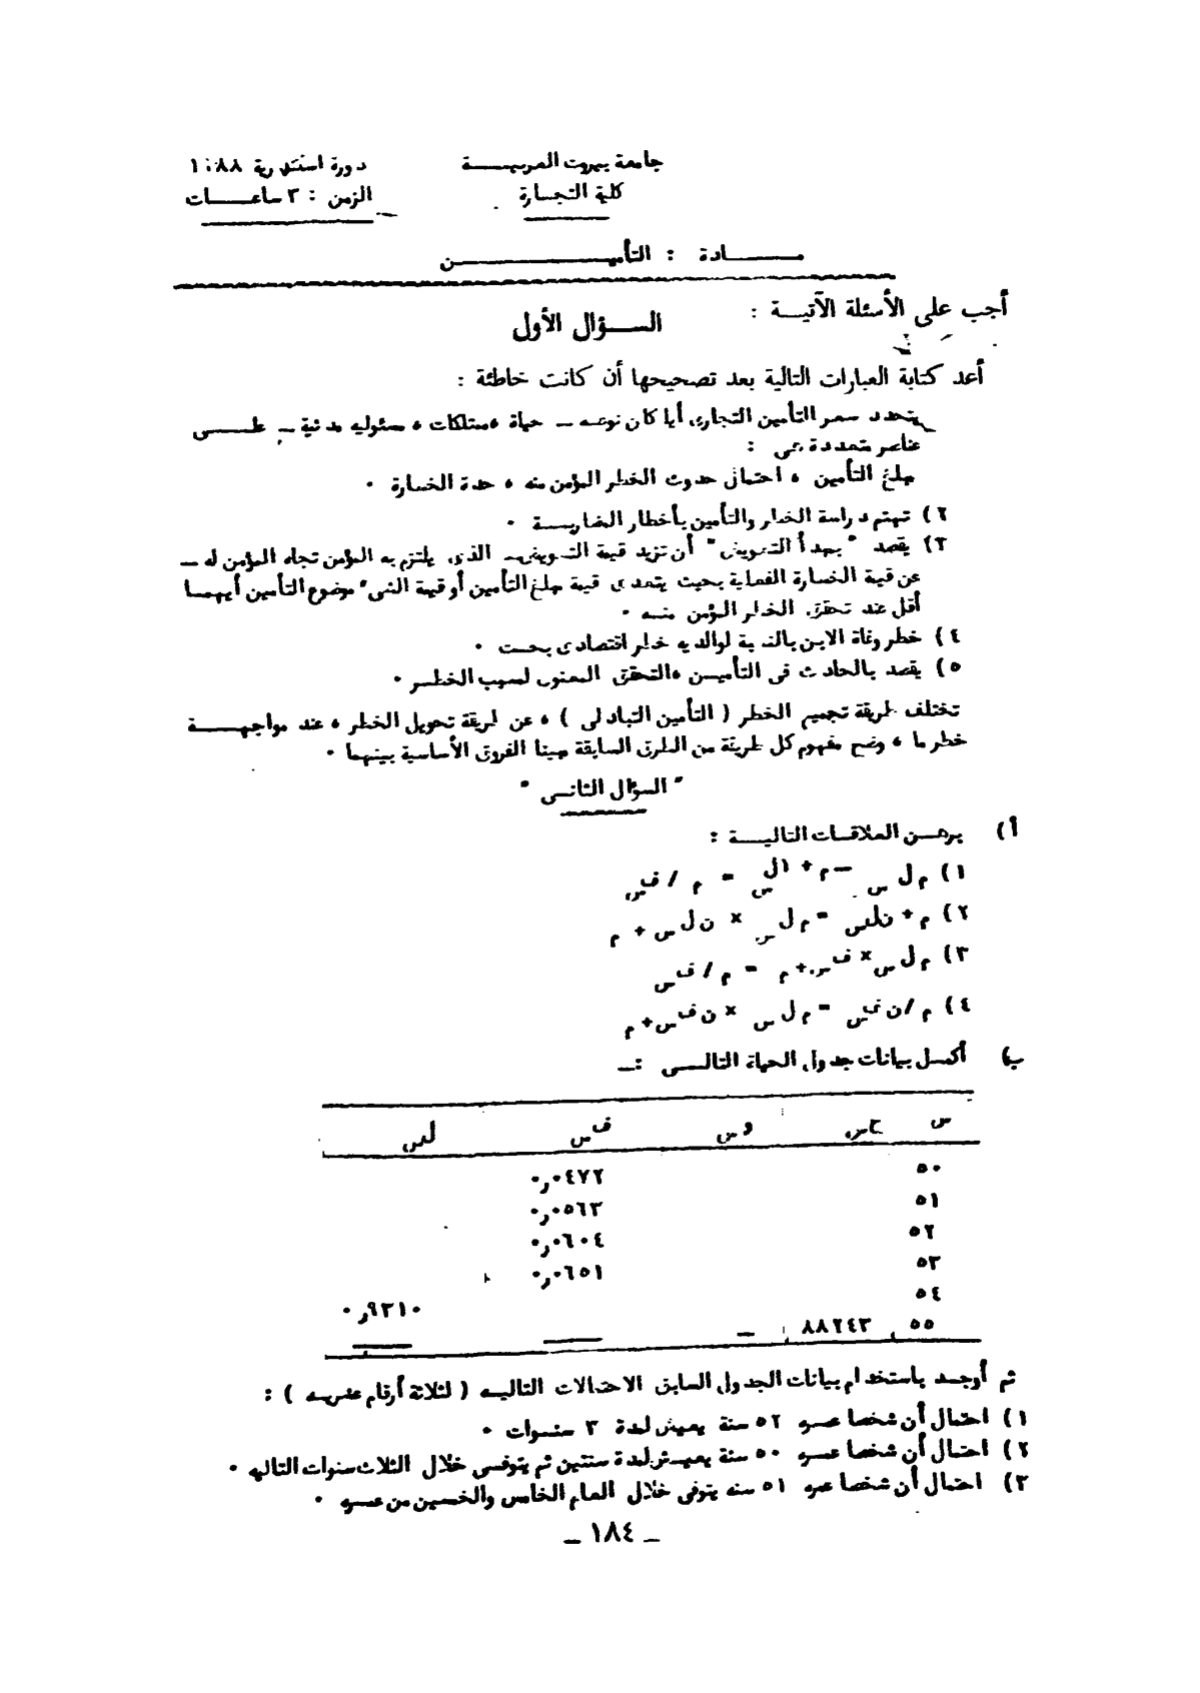 جامعة بيروت العربيـــة
دورة استثنائية ١٩٨٨
كلية التجارة
الزمن : ٣ ساعـــات
مـــادة : التأميـــــن
أجب على الأسئلة الآتيـة :
الســؤال الأول
أعد كتابة العبارات التالية بعد تصحيحها أن كانت خاطئة :
يتحدد سعر التأمين التجارى أيا كان نوعه – حياة ، ممتلكات ، مسئوليه مدنية – علـــى
عناصر متعددة هى :
مبلغ التأمين ، احتمال حدوث الخطر المؤمن منه ، حدة الخسارة .
٢) تهتم دراسة الخطر والتأمين بأخطار المضاربــة .
٣) يقصد " بمبدأ التعويض " أن تزيد قيمة التعويض الذى يلتزم به المؤمن تجاه المؤمن له –
عن قيمة الخسارة الفعلية بحيث يتعدى قيمة مبلغ التأمين أو قيمة الشىء موضوع التأمين أيهمـا
أقل عند تحقق الخطر المؤمن منـه .
٤) خطر وفاة الابن بالنسبة لوالديه خطر اقتصادى بحـت .
٥) يقصد بالحادث فى التأميـن ، التحقق المعنوى لمسبب الخطـر .
تختلف طريقة تجميع الخطر ( التأمين التبادلى ) ، عن طريقة تحويل الخطر ، عند مواجهـــة
خطر ما ، وضح مفهوم كل طريقة من الطرق السابقة مبينا الفروق الأساسية بينهما .
" السؤال الثانـى "
أ) برهـن العلاقـات التاليــة :
١) م ل س – م + ١ ل س = م / ف س
٢) م + ن ل س = م ل س × ن ل س + م
٣) م ل س × ف س + م = م / ف س
٤) م / ن ف س = م ل س × ن ف س + م
ب) أكمـل بيانات جدول الحياة التالــى :–
س ح س و س ف س ل س
٥٠ ٠٫٠٤٧٢
٥١ ٠٫٠٥٦٣
٥٢ ٠٫٠٦٠٤
٥٣ ٠٫٠٦٥١
٥٤ ٠٫٩٣١٠
٥٥ ٨٨٢٤٣ –
ثم أوجـد باستخدام بيانات الجدول السابق الاحتمالات التاليـه ( لثلاثة أرقام عشريـه ) :
١) احتمال أن شخصا عمـره ٥٢ سنة يعيش لمدة ٣ سنـوات .
٢) احتمال أن شخصا عمـره ٥٠ سنة يعيـش لمدة سنتين ثم يتوفـى خلال الثلاث سنوات التاليه .
٣) احتمال أن شخصا عمره ٥١ سنه يتوفى خلال العام الخامس والخمسين من عمـره .
– ١٨٤ –